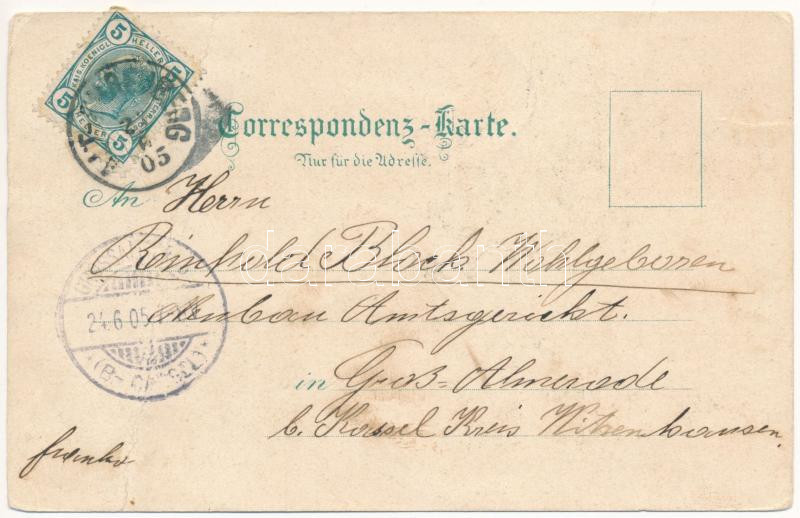 5
HELLER
KAIS. KOENIGL.
5
5
5
05
Correspondenz-Karte.
Nur für die Adresse.
An Herrn
Reinhold Block Wohlgeboren
Neubau Amtsgericht.
in Groß-Almerode
b. Kassel Kreis Witzenhausen.
franko
24.6.05
(B-CASSEL)
darabanth